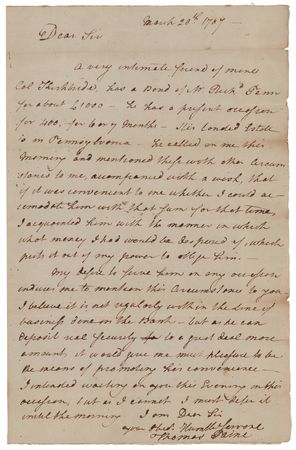 March 20th 1787 —
Dear Sir
A very intimate friend of mine
Col Kirkbride, has a Bond of Mr Penn
for about £1000 — he has a present occasion
for 400. for 6 or 7 Months — His landed Estate
is in Pennsylvania — he called on me this
Morning and mentioned these with other Circum
stances to me, accompanied with a wish, that
if it was convenient to me whether I could ac
comodate him with that sum for that time,
I acquainted him with the manner in which
what money I had would be disposed of, which
puts it out of my power to oblige him.
My desire to serve him on any occasion
induces me to mention this Circumstance to you
I believe it is not regularly within the line of
business done on the Bank — but as he can
deposit real security to a great deal more
amount, it would give me much pleasure to be
the means of promoting his convenience —
I intended waiting on you this Evening on this
occasion, but as I cannot I must defer it
until the morning I am Dear Sir
your Obed. Humble Servant
Thomas Paine